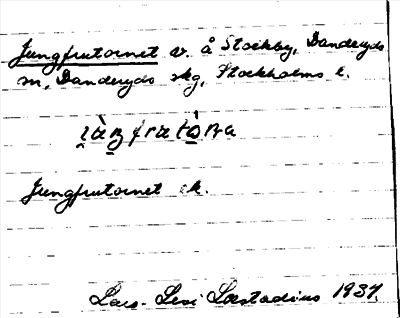 Jungfrutornet v. å Stockby, Danderyds
sn, Danderyds skg, Stockholms l.
Jungfrutornet sk.
Lars-Levi Læstadius 1937.